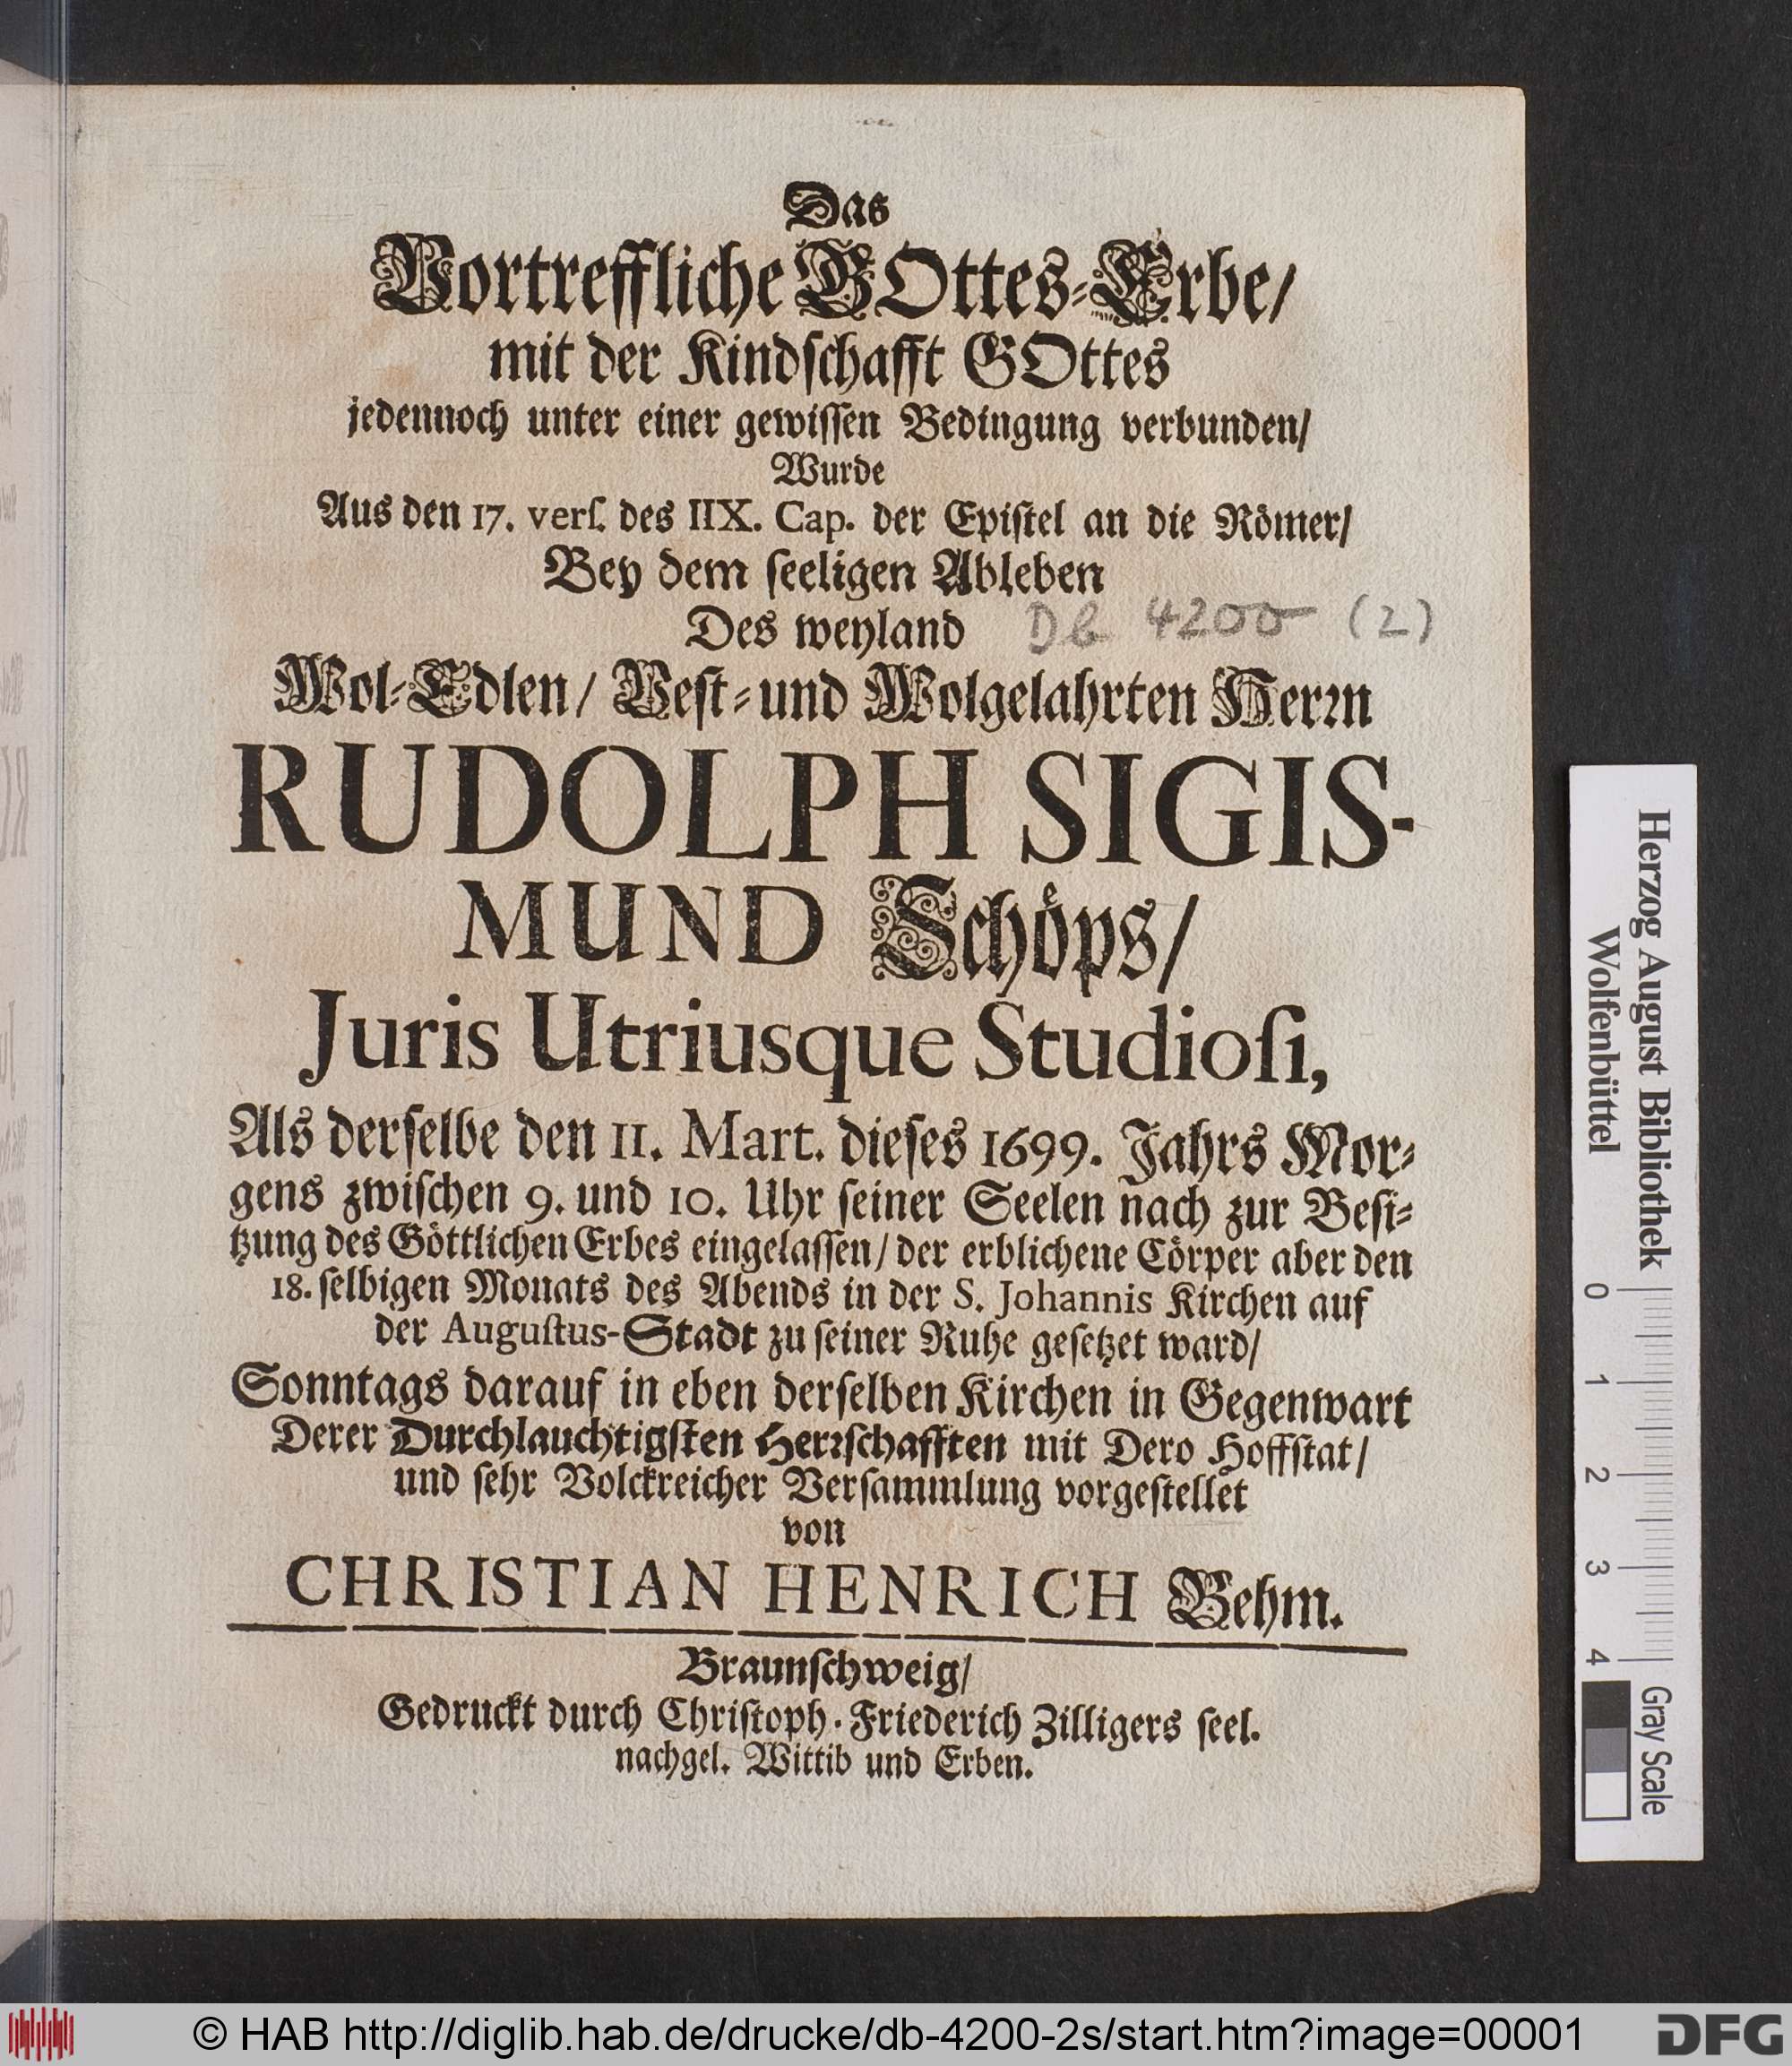 Das
Vortreffliche GOttes-Erbe/
mit der Kindſchafft GOttes
jedennoch unter einer gewiſſen Bedingung verbunden/
Wurde
Aus den 17. verſ. des IIX. Cap. der Epiſtel an die Römer/
Bey dem ſeeligen Ableben
Des weyland
Db 4200 (2)
Wol-Edlen/ Veſt-und Wolgelahrten Herꝛn
RUDOLPH SIGIS-
MUND Schoͤps/
Juris Utriusque Studioſi,
Als derſelbe den 11. Mart. dieſes 1699. Jahrs Mor-
gens zwiſchen 9. und 10. Uhr ſeiner Seelen nach zur Beſi-
tzung des Göttlichen Erbes eingelaſſen/ der erblichene Cörper aber den
18. ſelbigen Monats des Abends in der S. Johannis Kirchen auf
der Auguſtus-Stadt zu ſeiner Ruhe geſetzet ward/
Sonntags darauf in eben derſelben Kirchen in Gegenwart
Derer Durchlauchtigſten Herꝛſchafften mit Dero Hoffſtat/
und ſehr Volckreicher Verſammlung vorgeſtellet
von
CHRISTIAN HENRICH Behm.
Braunſchweig/
Gedruckt durch Chriſtoph-Friederich Zilligers ſeel.
nachgel. Wittib und Erben.
Herzog August Bibliothek
Wolfenbüttel
0 1 2 3 4
Gray Scale
© HAB http://diglib.hab.de/drucke/db-4200-2s/start.htm?image=00001
DFG